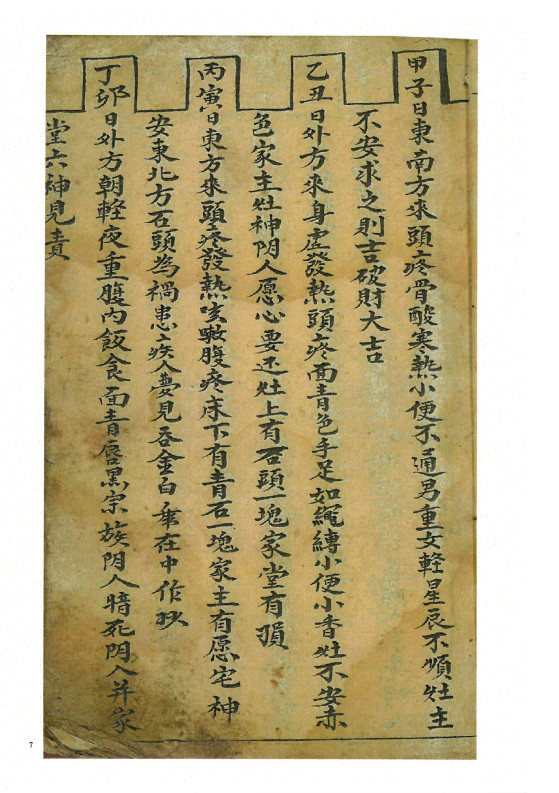 甲子日東南方來頭疼骨酸寒熱小便不通男重女輕星辰不順灶主
不安求之則吉破財大吉
乙丑日外方來身虛發熱頭疼面青色手足如繩縛小便小香灶不安赤
色家主灶神阴人愿心要还灶上有石頭一塊家堂有損
丙寅日東方來頭疼發熱咳嗽腹疼床下有青石一塊家主有愿宅神
安東北方石頭為禍患疾人夢見吞金白𠂹在中作
丁卯日外方朝輕夜重腹內飯食面青唇黑宗族阴人暗死阴人并家
堂六神見責
7